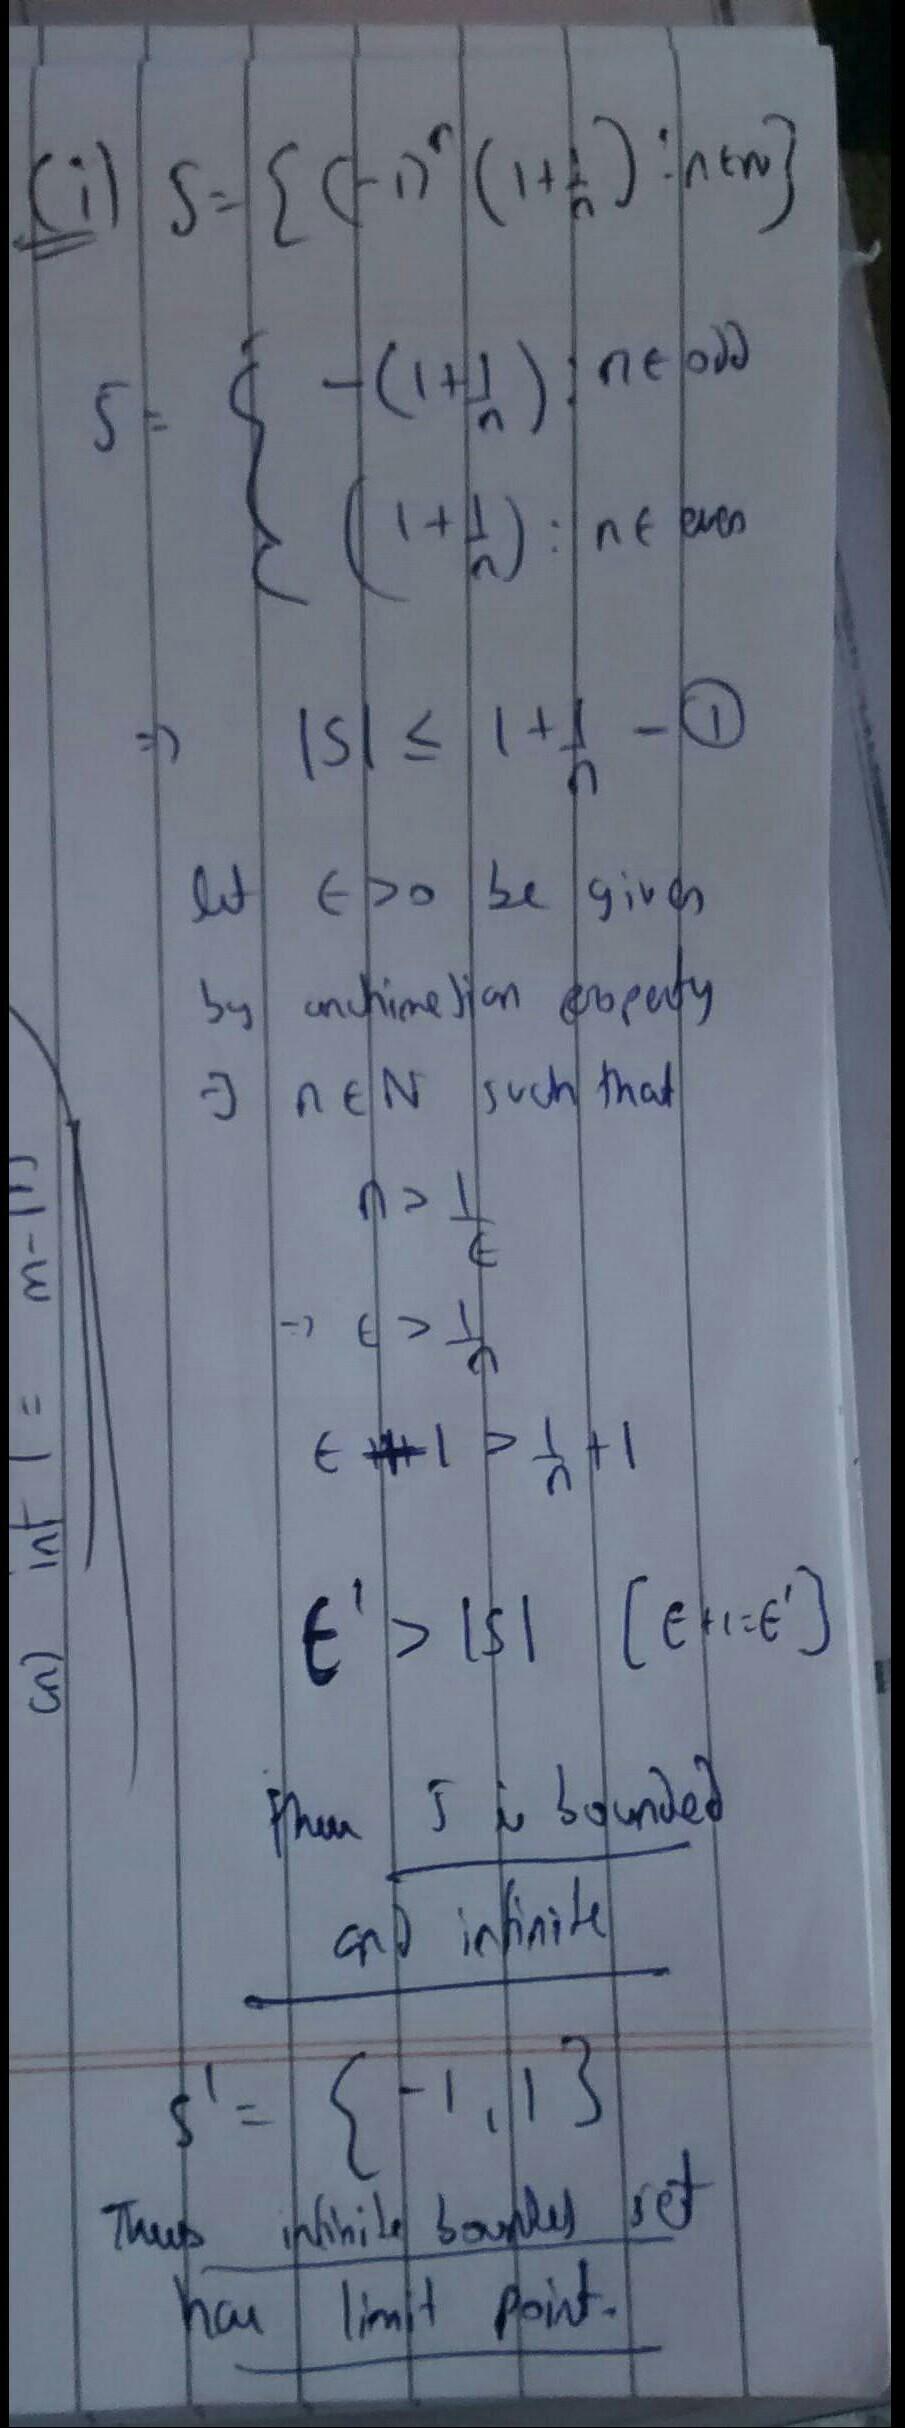 (i) S = { (-1)^n (1 + 1/n) : n ∈ N }
S = { -(1 + 1/n) : n ∈ odd
(1 + 1/n) : n ∈ even
⇒ |S| ≤ 1 + 1/n - ①
let ε > 0 be given
by archimedian property
∃ n ∈ N such that
n > 1/ε
⇒ ε > 1/n
ε + 1 > 1/n + 1
ε' > |S| [ε + 1 = ε']
S is bounded
and infinite
S' = { -1, 1 }
Thus infinite bounded set
has limit point.
a) int ( = m - 1